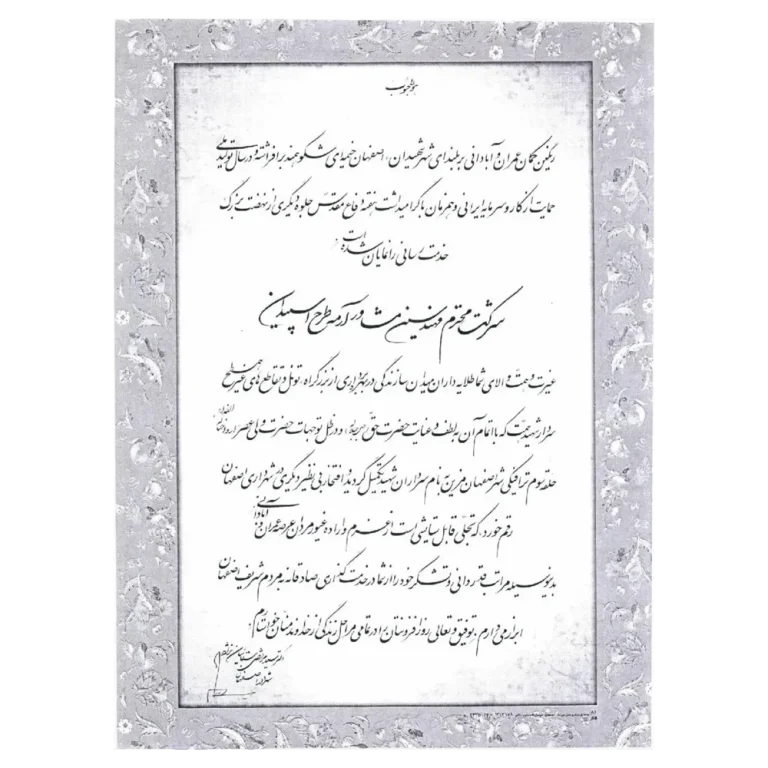 هوالمحبوب
رنگین کمان عمران و آبادانی بر بلندای شهر شهیدان، اصفهان خیمه‌ای شکوهمند برافراشته و در سال تولید ملی
حمایت از کار و سرمایه ایرانی و همزمان با گرامیداشت هفته دفاع مقدس جلوه دیگری از نهضت بزرگ
خدمت رسانی را نمایان شده است
شرکت محترم مهندسین مشاور آرمه طرح اسپیدان
غیرت و همت والای شما طلایه داران میدان سازندگی در بهره‌برداری از بزرگراه، تونل و تقاطع های غیر همسطح
سردار شهید همت که با اتمام آن به لطف و عنایت حضرت حق و در ظل توجهات حضرت ولی عصر ارواحنا فداه
حلقه سوم ترافیکی شهر اصفهان مزین به نام سرداران شهید تکمیل گردید و افتخار بی نظیر دیگری در شهرداری اصفهان
رقم خورد، که تجلی قابل ستایشی است از عزم و اراده غیور مردان عرصه عمران و آبادانی
بدینوسیله مراتب قدردانی و تشکر خود را از شما در خدمت گذاری صادقانه به مردم شریف اصفهان
ابراز می دارم. توفیق و تعالی روز افزونتان را در تمامی مراحل زندگی از خداوند منان خواستارم.
دکتر سید مرتضی سقائیان نژاد
شهردار اصفهان